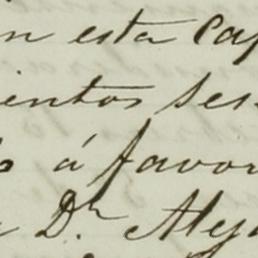 en esta Cap
ientos ses
á favor
Dr. Alej